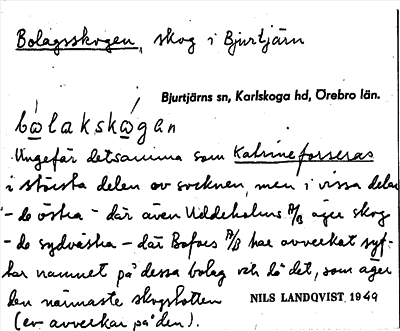 Bolagsskogen, skog i Bjurtjärn
Bjurtjärns sn, Karlskoga hd, Örebro län.
bo̱laksko̱gan
Ungefär detsamma som Katrineforseras
i största delen av socknen, men i vissa delar
– de östra – där även Uddeholms A/B äger skog
– de sydvästra – där Bofors A/B har avverkat syf-
tar namnet på dessa bolag och då det, som äger
den närmaste skogslotten
NILS LANDQVIST 1949
(ev avverkar på den).